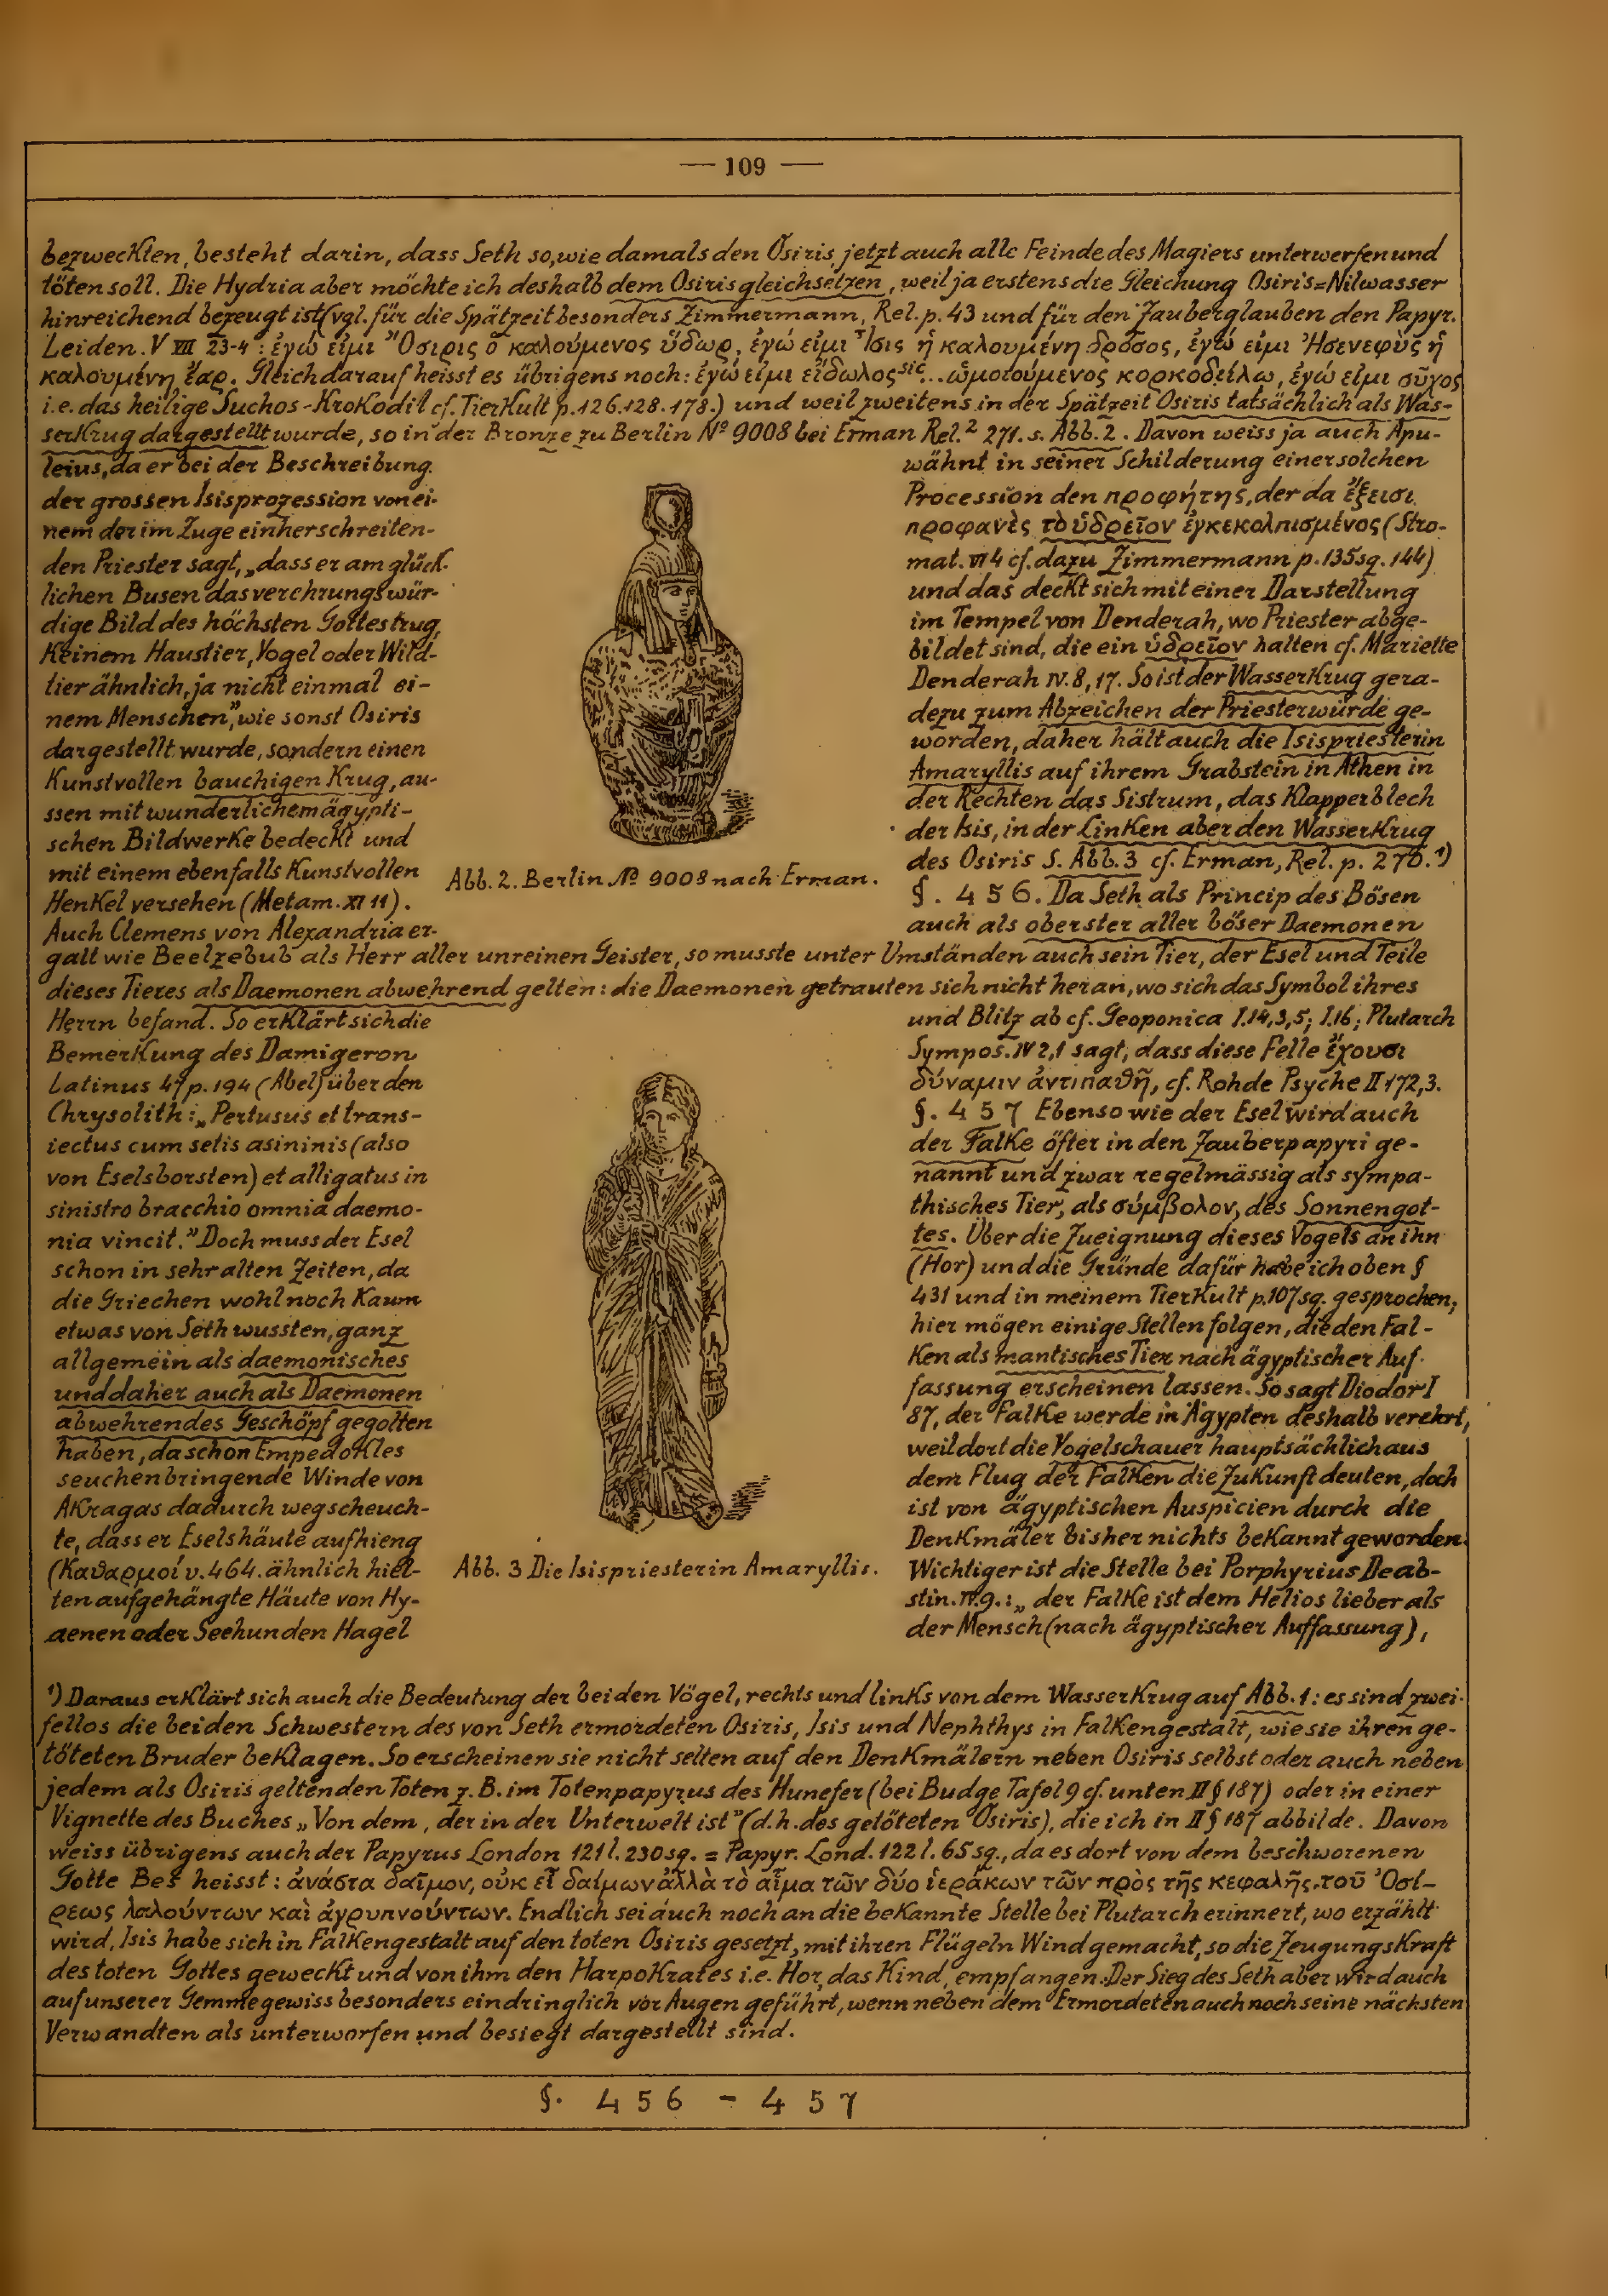 — 109 —
bezweckten, besteht darin, dass Seth so, wie damals den Osiris, jetzt auch alle Feinde des Magiers unterwerfen und
töten soll. Die Hydria aber möchte ich deshalb dem Osiris gleichsetzen, weil ja erstens die Gleichung Osiris=Nilwasser
hinreichend bezeugt ist (vgl. für die Spätzeit besonders Zimmermann, Rel. p. 43 und für den Zauberglauben den Papyr.
Leiden. V VIII 23-4: ἐγώ εἰμι Ὄσιρις ὁ καλούμενος ὕδωρ, ἐγώ εἰμι Ἶσις ἡ καλουμένη δρόσος, ἐγώ εἰμι Ἠσενεφὺς ἡ
καλουμένη ἔαρ. Gleich darauf heisst es übrigens noch: ἐγώ εἰμι εἴδωλος sic... ὡμοιούμενος κορκοδείλω, ἐγώ εἰμι σοῦχος
i.e. das heilige Suchos-Krokodil cf. Tierkult p. 126. 128. 178.) und weil zweitens in der Spätzeit Osiris tatsächlich als Was-
serkrug dargestellt wurde, so in der Bronze zu Berlin No 9008 bei Erman Rel.² 271. s. Abb. 2. Davon weiss ja auch Apu-
leius, da er bei der Beschreibung
der grossen Isisprozession von ei-
nem der im Zuge einherschreiten-
den Priester sagt, „dass er am glück-
lichen Busen das verehrungswür-
dige Bild des höchsten Gottes trug,
keinem Haustier, Vogel oder Wild-
tier ähnlich, ja nicht einmal ei-
nem Menschen", wie sonst Osiris
dargestellt wurde, sondern einen
kunstvollen bauchigen Krug, au-
ssen mit wunderlichem ägypti-
schen Bildwerke bedeckt und
mit einem ebenfalls kunstvollen
Henkel versehen (Metam. XI 11).
Auch Clemens von Alexandria er-
Abb. 2. Berlin No 9008 nach Erman.
wähnt in seiner Schilderung einer solchen
Procession den προφήτης, der da ἔξεισι
προφανὲς τὸ ὑδρεῖον ἐγκεκολπισμένος (Stro-
mat. VI 4 cf. dazu Zimmermann p. 135 sq. 144)
und das deckt sich mit einer Darstellung
im Tempel von Denderah, wo Priester abge-
bildet sind, die ein ὑδρεῖον halten cf. Mariette
Denderah IV. 8, 17. So ist der Wasserkrug gera-
dezu zum Abzeichen der Priesterwürde ge-
worden, daher hält auch die Isispriesterin
Amaryllis auf ihrem Grabstein in Athen in
der Rechten das Sistrum, das Klapperblech
der Isis, in der Linken aber den Wasserkrug
des Osiris s. Abb. 3 cf. Erman, Rel. p. 270. ¹)
§. 456. Da Seth als Princip des Bösen
auch als oberster aller böser Daemonen
galt wie Beelzebub als Herr aller unreinen Geister, so musste unter Umständen auch sein Tier, der Esel und Teile
dieses Tieres als Daemonen abwehrend gelten: die Daemonen getrauten sich nicht heran, wo sich das Symbol ihres
Herrn befand. So erklärt sich die
Bemerkung des Damigeron
Latinus 47 p. 194 (Abel) über den
Chrysolith: „Pertusus et trans-
iectus cum setis asininis (also
von Eselsborsten) et alligatus in
sinistro bracchio omnia daemo-
nia vincit." Doch muss der Esel
schon in sehr alten Zeiten, da
die Griechen wohl noch kaum
etwas von Seth wussten, ganz
allgemein als daemonisches
und daher auch als Daemonen
abwehrendes Geschöpf gegolten
haben, da schon Empedokles
seuchenbringende Winde von
Akragas dadurch wegscheuch-
te, dass er Eselshäute aufhieng
(Καθαρμοί v. 464. ähnlich hiel-
ten aufgehängte Häute von Hy-
aenen oder Seehunden Hagel
Abb. 3 Die Isispriesterin Amaryllis.
und Blitz ab cf. Geoponica I. 14, 3, 5; I. 16; Plutarch
Sympos. IV 2, 1 sagt, dass diese Felle ἔχουσι
δύναμιν ἀντιπαθῆ, cf. Rohde Psyche II 172, 3.
§. 457 Ebenso wie der Esel wird auch
der Falke öfter in den Zauberpapyri ge-
nannt und zwar regelmässig als sympa-
thisches Tier, als σύμβολον, des Sonnengot-
tes. Über die Zueignung dieses Vogels an ihn
(Hor) und die Gründe dafür habe ich oben §
431 und in meinem Tierkult p. 107 sq. gesprochen,
hier mögen einige Stellen folgen, die den Fal-
ken als mantisches Tier nach ägyptischer Auf-
fassung erscheinen lassen. So sagt Diodor I
87, der Falke werde in Ägypten deshalb verehrt,
weil dort die Vogelschauer hauptsächlich aus
dem Flug der Falken die Zukunft deuten, doch
ist von ägyptischen Auspicien durch die
Denkmäler bisher nichts bekannt geworden.
Wichtiger ist die Stelle bei Porphyrius De ab-
stin. IV. 9.: „der Falke ist dem Helios lieber als
der Mensch (nach ägyptischer Auffassung),
¹) Daraus erklärt sich auch die Bedeutung der beiden Vögel, rechts und links von dem Wasserkrug auf Abb. 1: es sind zwei-
fellos die beiden Schwestern des von Seth ermordeten Osiris, Isis und Nephthys in Falkengestalt, wie sie ihren ge-
töteten Bruder beklagen. So erscheinen sie nicht selten auf den Denkmälern neben Osiris selbst oder auch neben
jedem als Osiris geltenden Toten z. B. im Totenpapyrus des Hunefer (bei Budge Tafel 9 cf. unten II § 187) oder in einer
Vignette des Buches „Von dem, der in der Unterwelt ist" (d. h. des getöteten Osiris), die ich in II § 187 abbilde. Davon
weiss übrigens auch der Papyrus London 121 l. 230 sq. = Papyr. Lond. 122 l. 65 sq., da es dort von dem beschworenen
Gotte Bes heisst: ἀνάστα δαῖμον, οὐκ εἶ δαίμων ἀλλὰ τὸ αἷμα τῶν δύο ἱεράκων τῶν πρὸς τῆς κεφαλῆς τοῦ Ὀσί-
ρεως λαλούντων καὶ ἀγρυπνούντων. Endlich sei auch noch an die bekannte Stelle bei Plutarch erinnert, wo erzählt
wird, Isis habe sich in Falkengestalt auf den toten Osiris gesetzt, mit ihren Flügeln Wind gemacht, so die Zeugungskraft
des toten Gottes geweckt und von ihm den Harpokrates i.e. Hor, das Kind, empfangen. Der Sieg des Seth aber wird auch
auf unserer Gemme gewiss besonders eindringlich vor Augen geführt, wenn neben dem Ermordeten auch noch seine nächsten
Verwandten als unterworfen und besiegt dargestellt sind.
§. 456 - 457